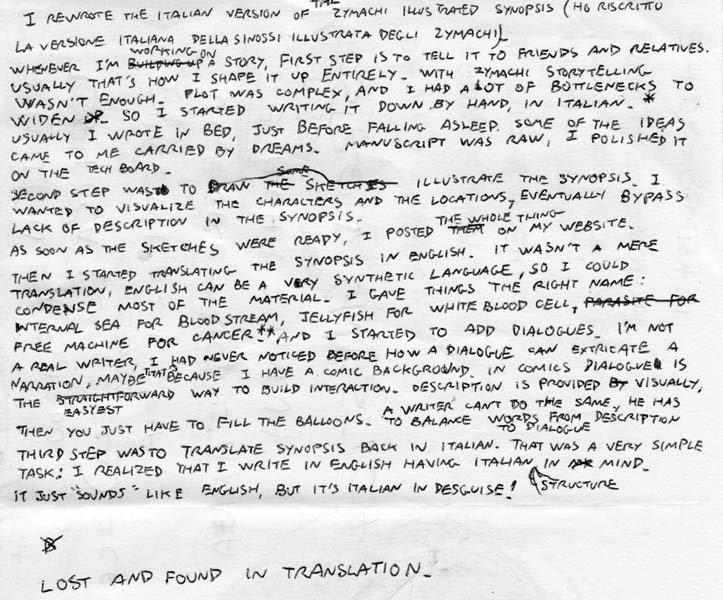 I REWROTE THE ITALIAN VERSION OF THE ZYMACHI ILLUSTRATED SYNOPSIS (HO RISCRITTO
LA VERSIONE ITALIANA DELLA SINOSSI ILLUSTRATA DEGLI ZYMACHI)
WHENEVER I'M WORKING ON A STORY, FIRST STEP IS TO TELL IT TO FRIENDS AND RELATIVES.
USUALLY THAT'S HOW I SHAPE IT UP ENTIRELY. WITH ZYMACHI STORYTELLING
WASN'T ENOUGH. PLOT WAS COMPLEX, AND I HAD A LOT OF BOTTLENECKS TO
WIDEN. SO I STARTED WRITING IT DOWN BY HAND, IN ITALIAN. *
USUALLY I WROTE IN BED, JUST BEFORE FALLING ASLEEP. SOME OF THE IDEAS
CAME TO ME CARRIED BY DREAMS. MANUSCRIPT WAS RAW, I POLISHED IT
ON THE TECH BOARD.
SECOND STEP WAS TO ILLUSTRATE THE SYNOPSIS. I
WANTED TO VISUALIZE THE CHARACTERS AND THE LOCATIONS, EVENTUALLY BYPASS
LACK OF DESCRIPTION IN THE SYNOPSIS.
AS SOON AS THE SKETCHES WERE READY, I POSTED THE WHOLE THING ON MY WEBSITE.
THEN I STARTED TRANSLATING THE SYNOPSIS IN ENGLISH. IT WASN'T A MERE
TRANSLATION, ENGLISH CAN BE A VERY SYNTHETIC LANGUAGE, SO I COULD
CONDENSE MOST OF THE MATERIAL. I GAVE THINGS THE RIGHT NAME:
INTERNAL SEA FOR BLOOD STREAM, JELLYFISH FOR WHITE BLOOD CELL, PARASITE FOR
FREE MACHINE FOR CANCER** AND I STARTED TO ADD DIALOGUES. I'M NOT
A REAL WRITER, I HAD NEVER NOTICED BEFORE HOW A DIALOGUE CAN EXTRICATE A
NARRATION, MAYBE THAT'S BECAUSE I HAVE A COMIC BACKGROUND. IN COMICS DIALOGUE IS
THE EASYEST WAY TO BUILD INTERACTION. DESCRIPTION IS PROVIDED VISUALLY,
THEN YOU JUST HAVE TO FILL THE BALLOONS. A WRITER CAN'T DO THE SAME, HE HAS
TO BALANCE WORDS FROM DESCRIPTION TO DIALOGUE
THIRD STEP WAS TO TRANSLATE SYNOPSIS BACK IN ITALIAN. THAT WAS A VERY SIMPLE
TASK: I REALIZED THAT I WRITE IN ENGLISH HAVING ITALIAN STRUCTURE IN MIND.
IT JUST "SOUNDS" LIKE ENGLISH, BUT IT'S ITALIAN IN DESGUISE!
LOST AND FOUND IN TRANSLATION.